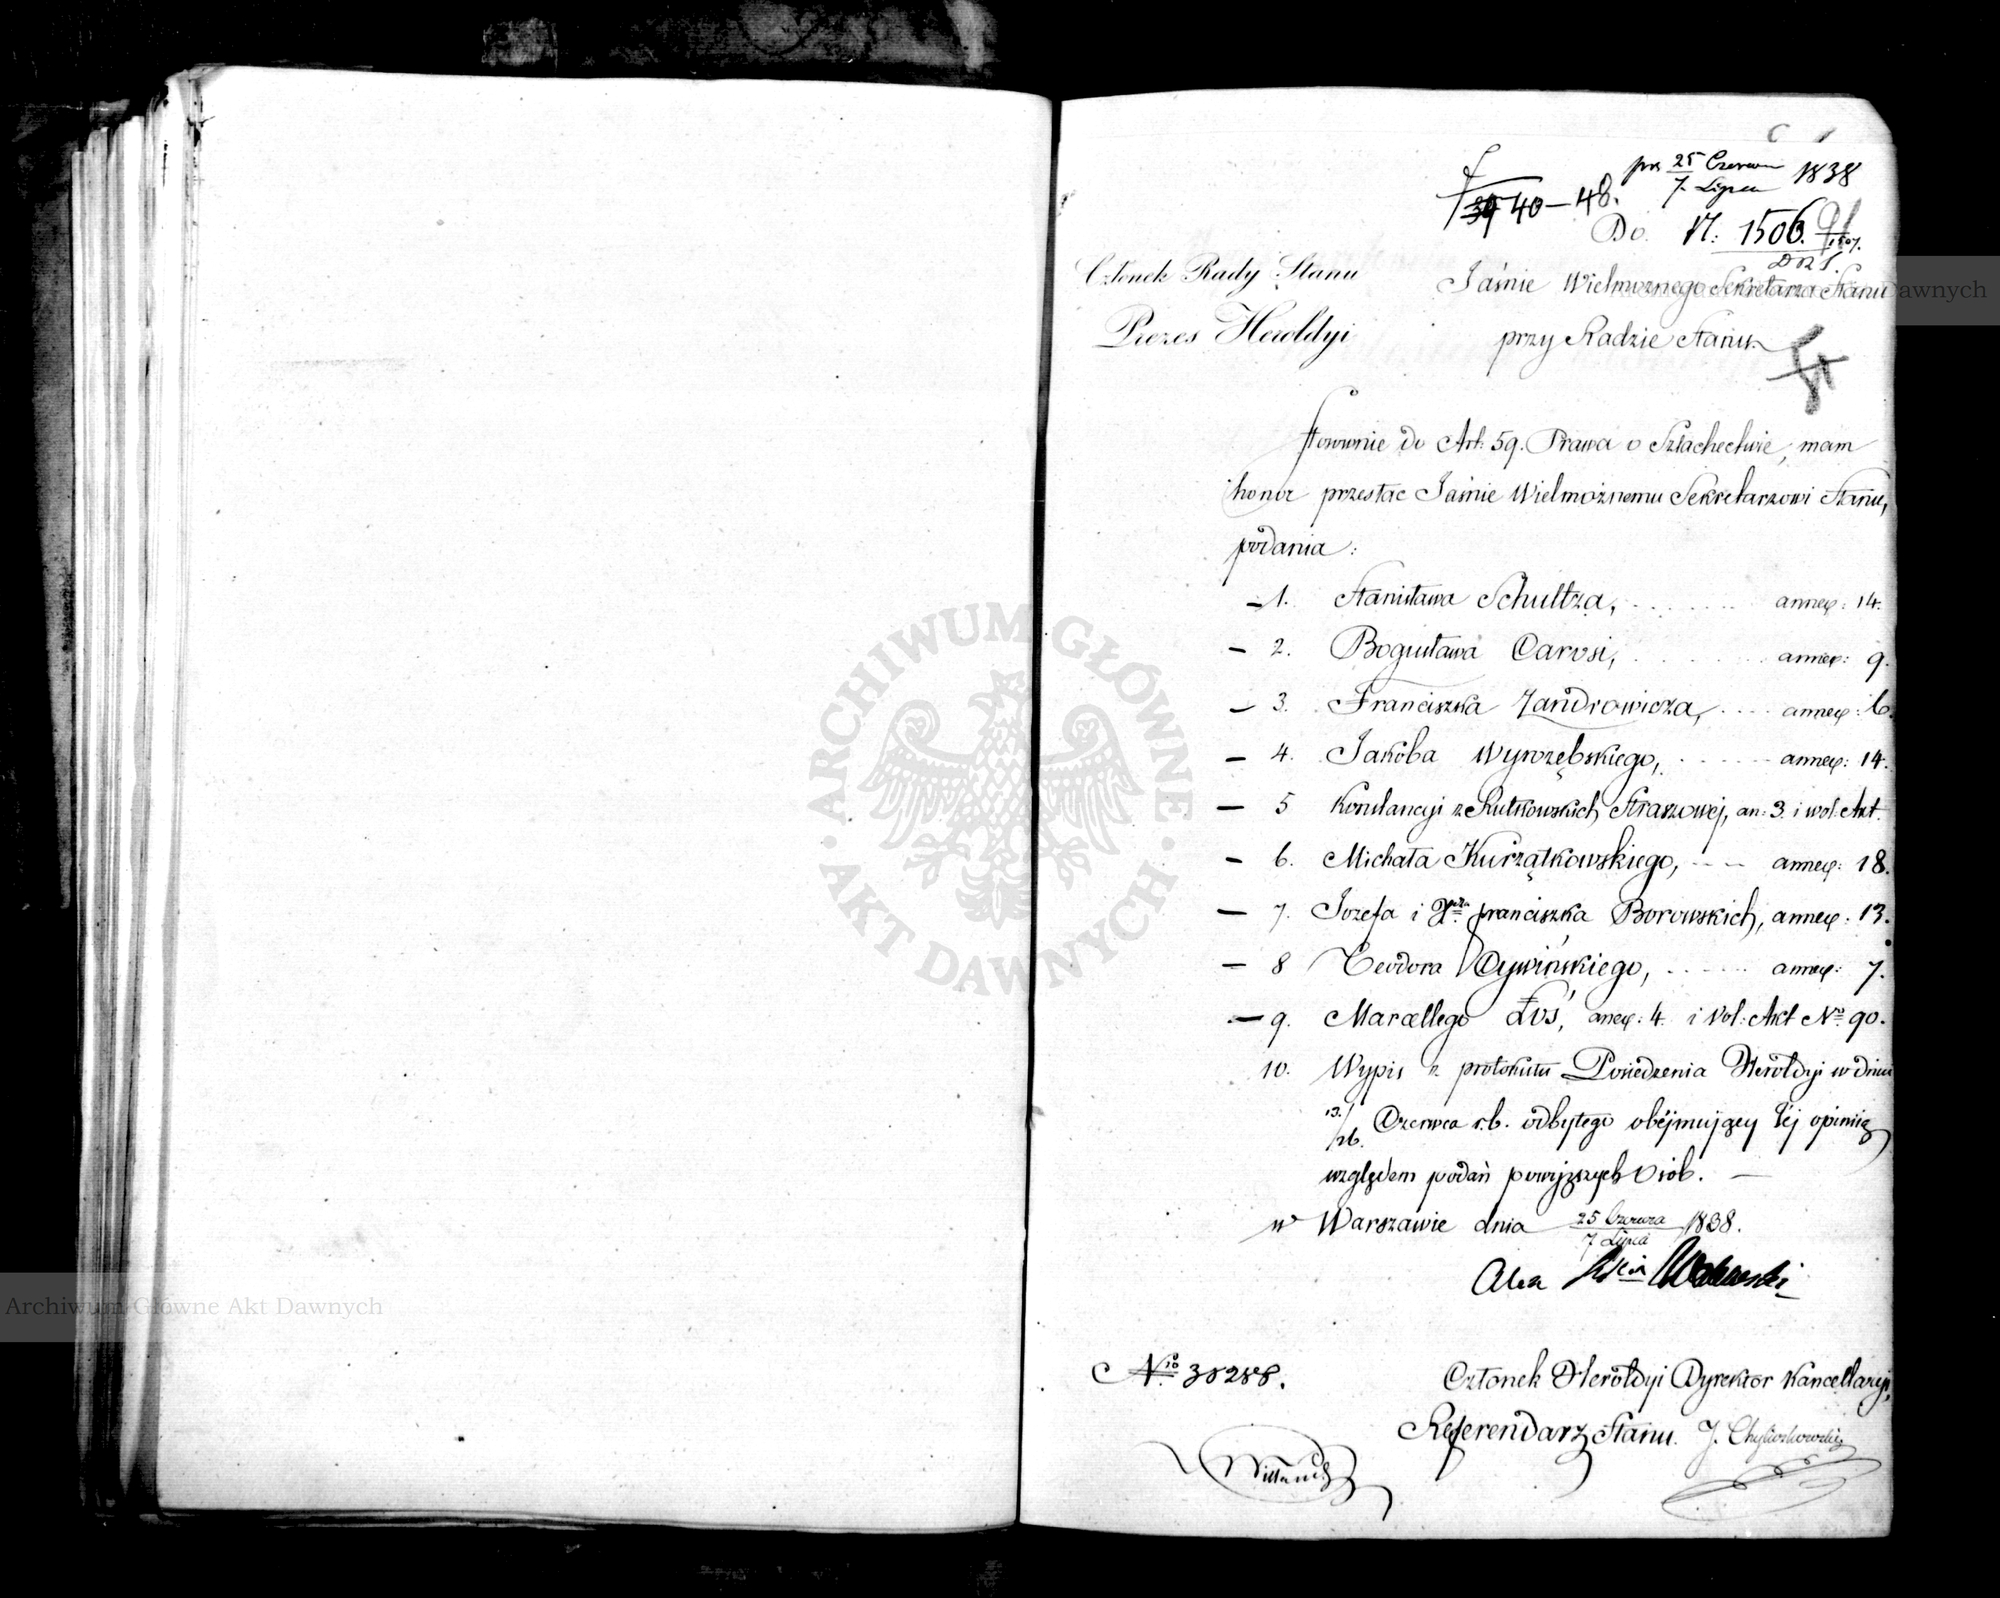 prs 25 Czerwca 1838
7. Lipca
39 40–48.
Do N: 1506.
1507.
D R S.
Członek Rady Stanu
Prezes Heroldyi
Jaśnie Wielmożnego Sekretarza Stanu
przy Radzie Stanu
Stosownie do Art: 59. Prawa o Szlachectwie, mam
honor przesłać Jaśnie Wielmożnemu Sekretarzowi Stanu,
podania:
– 1. Stanisława Schultza, . . . . . . annex: 14.
– 2. Bogusława Carosi, . . . . . . annex: 9.
– 3. Franciszka Zandrowicza, . . . . annex: 6.
– 4. Jakóba Wywrzębskiego, . . . . . annex: 14.
– 5 Konstancyi z Rutkowskich Straszowej, an: 3. i vol: Akt.
– 6. Michała Kurzątkowskiego, . . . annex: 18.
– 7. Józefa i Franciszka Borowskich, annex: 13.
– 8 Teodora Cywińskiego, . . . . . annex: 7.
– 9. Marcellego Łoś, anex: 4. i Vol: Akt No 90.
10. Wypis z protokułu Posiedzenia Heroldyi w dniu
13./26. Czerwca r.b. odbytego obéjmujący Jéj opinią
względem podań powyższych Osób. —
w Warszawie dnia 25 Czerwca 1838.
7 Lipca
Alex Walewski
No 38288.
Członek Heroldyi Dyrektor Kancellaryi,
Referendarz Stanu. J. Chyliczkowski
ARCHIWUM GŁÓWNE AKT DAWNYCH
Archiwum Główne Akt Dawnych
Dawnych